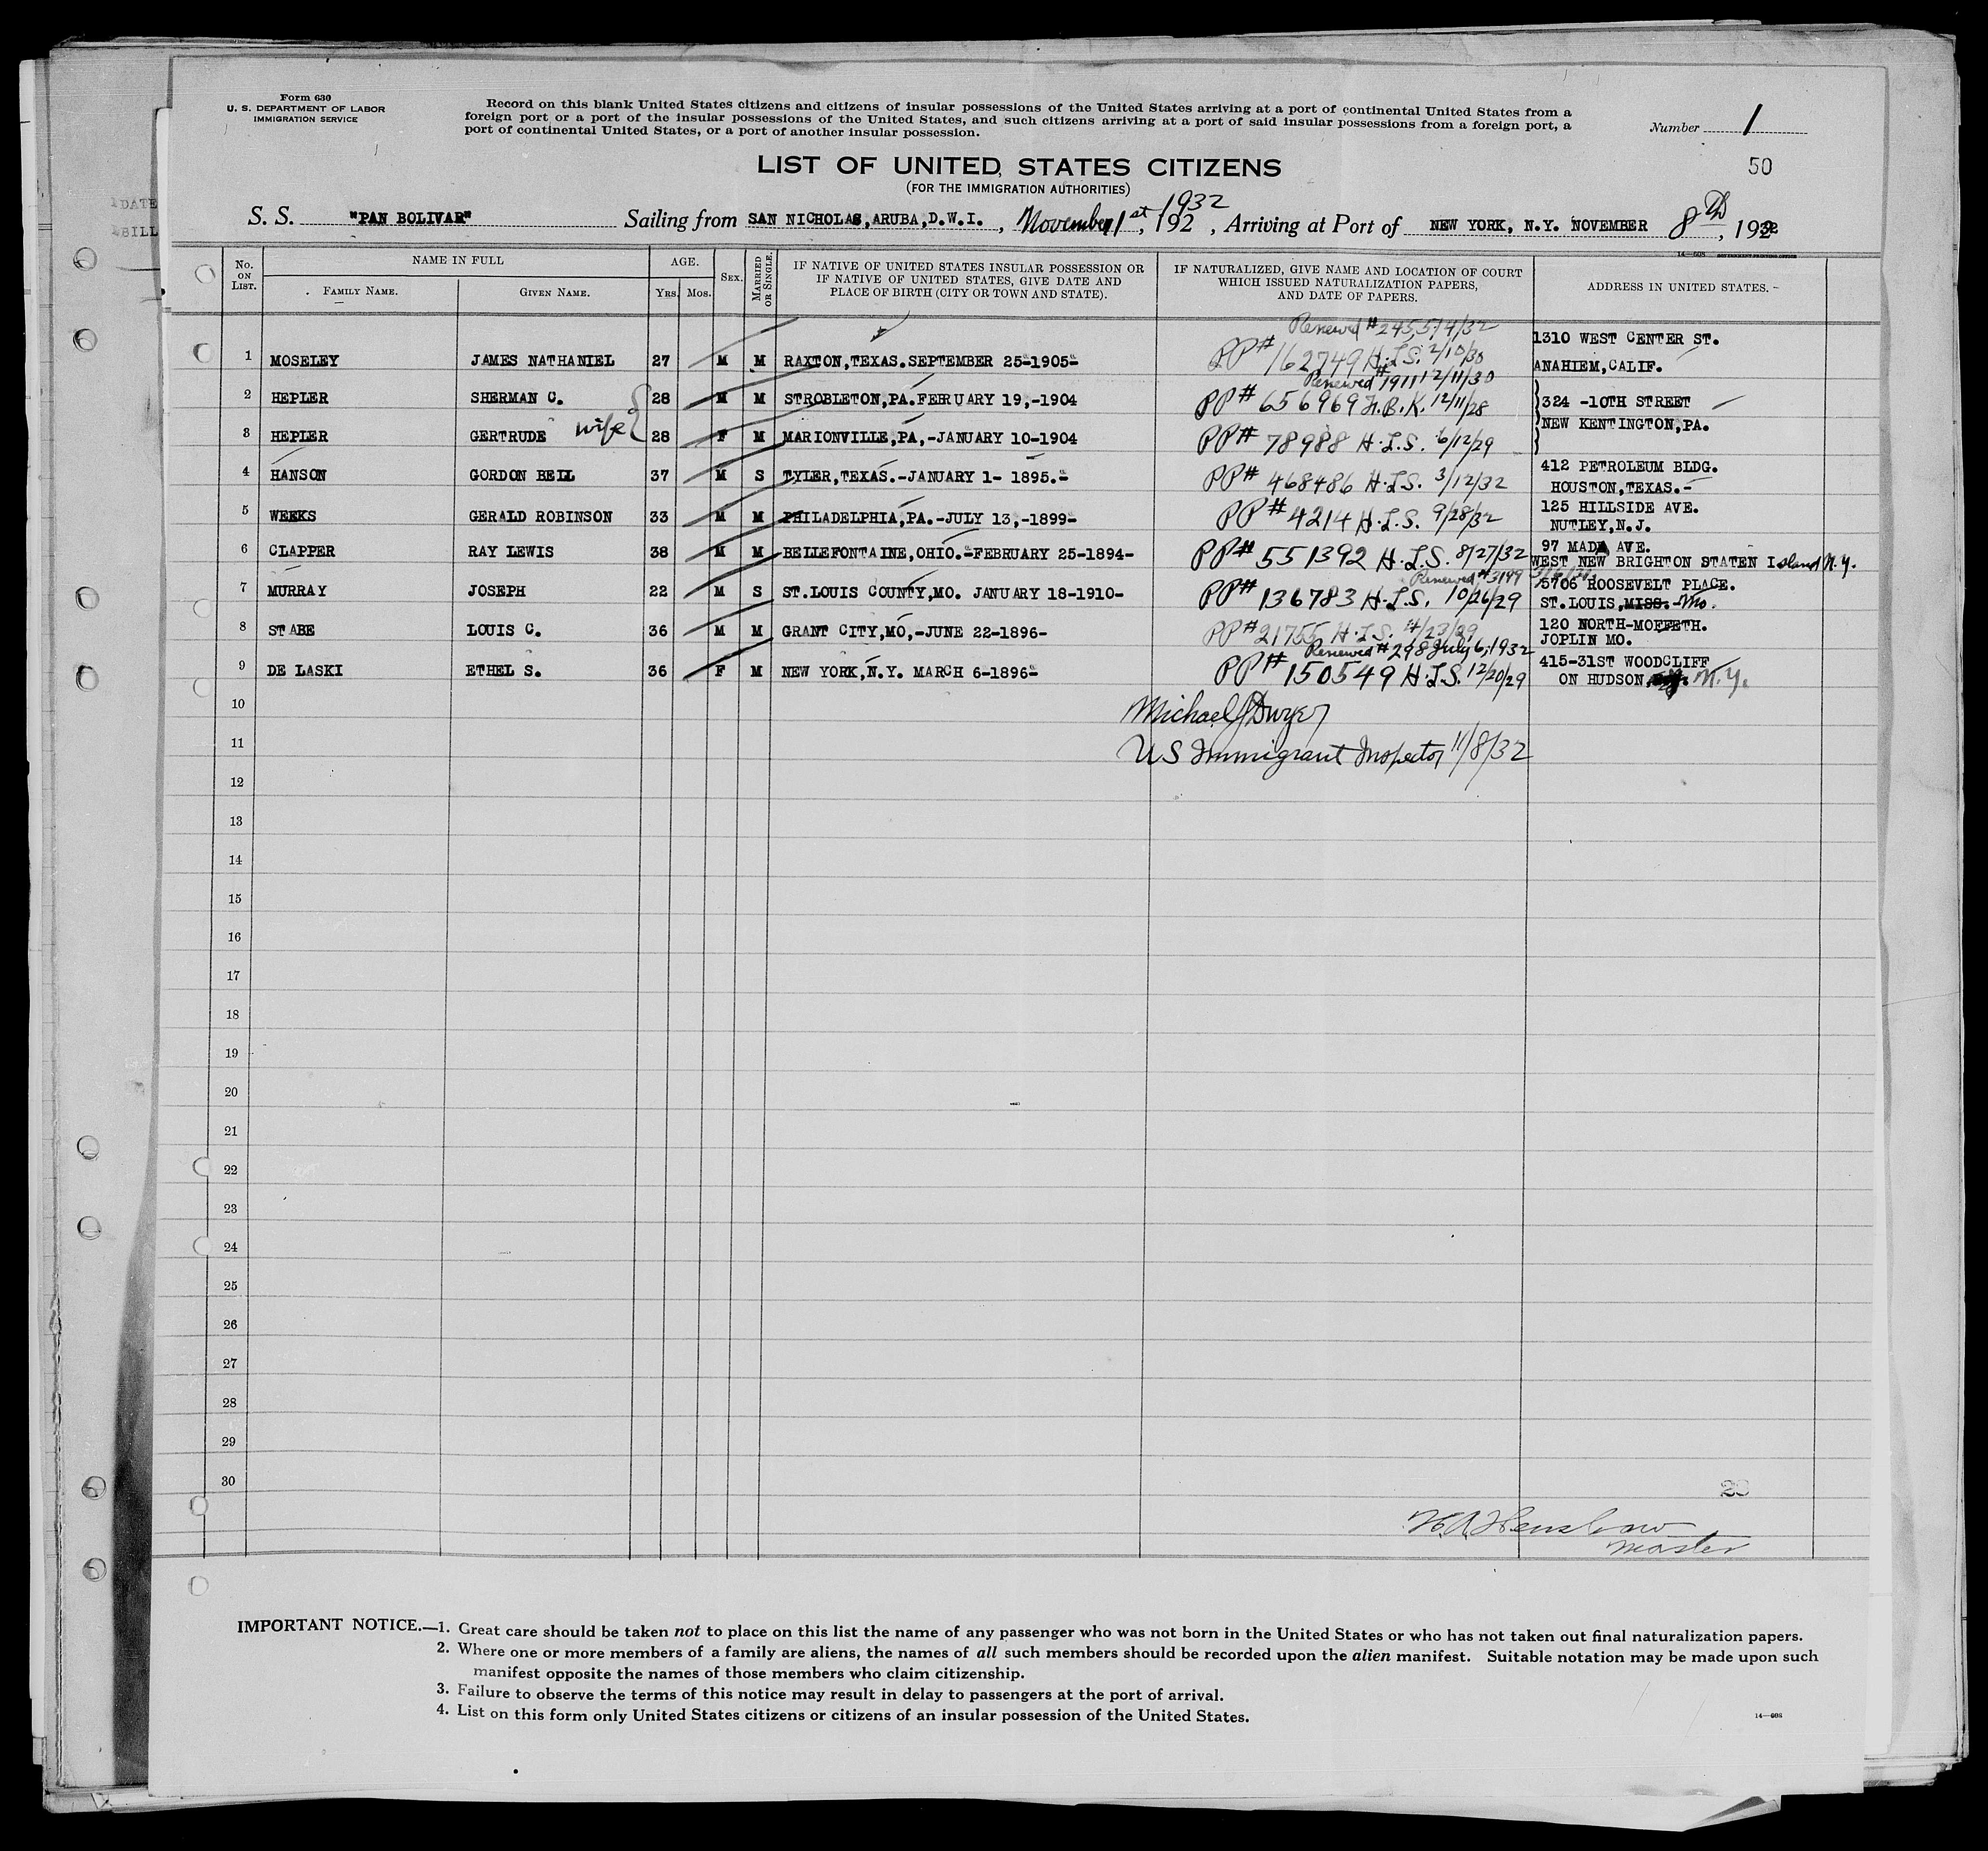 Form 630
U. S. DEPARTMENT OF LABOR
IMMIGRATION SERVICE
Record on this blank United States citizens and citizens of insular possessions of the United States arriving at a port of continental United States from a
foreign port or a port of the insular possessions of the United States, and such citizens arriving at a port of said insular possessions from a foreign port, a
port of continental United States, or a port of another insular possession.
Number 1
50
LIST OF UNITED STATES CITIZENS
(FOR THE IMMIGRATION AUTHORITIES)
DATE
BILL
S. S. "PAN BOLIVAR" Sailing from SAN NICHOLAS, ARUBA, D.W.I. , November 1st , 192 1932 , Arriving at Port of NEW YORK, N.Y. NOVEMBER 8th , 1932
14—608 GOVERNMENT PRINTING OFFICE
No. ON LIST. NAME IN FULL FAMILY NAME. GIVEN NAME. AGE. YRS. MOS. SEX. MARRIED OR SINGLE. IF NATIVE OF UNITED STATES INSULAR POSSESSION OR IF NATIVE OF UNITED STATES, GIVE DATE AND PLACE OF BIRTH (CITY OR TOWN AND STATE). IF NATURALIZED, GIVE NAME AND LOCATION OF COURT WHICH ISSUED NATURALIZATION PAPERS, AND DATE OF PAPERS. ADDRESS IN UNITED STATES.
Renewed #245, 5/4/32
1310 WEST CENTER ST.
1 MOSELEY JAMES NATHANIEL 27 M M RAXTON, TEXAS. SEPTEMBER 25-1905- PP# 162749 H.L.S. 2/10/30 ANAHIEM, CALIF.
Renewed #1911 12/11/30
2 HEPLER SHERMAN C. 28 M M STROBLETON, PA. FEBRUARY 19,-1904 PP# 656969 F.B.K. 12/11/28 324 -10TH STREET
NEW KENTINGTON, PA.
3 HEPLER GERTRUDE wife 28 F M MARIONVILLE, PA,-JANUARY 10-1904 PP# 78988 H.L.S. 6/12/29
412 PETROLEUM BLDG.
4 HANSON GORDON BELL 37 M S TYLER, TEXAS.-JANUARY 1- 1895.- PP# 468486 H.L.S. 3/12/32 HOUSTON, TEXAS.-
125 HILLSIDE AVE.
5 WEEKS GERALD ROBINSON 33 M M PHILADELPHIA, PA.-JULY 13,-1899- PP# 4214 H.L.S. 9/28/32 NUTLEY, N.J.
97 MADA AVE.
6 CLAPPER RAY LEWIS 38 M M BELLEFONTAINE, OHIO.-FEBRUARY 25-1894- PP# 551392 H.L.S. 8/27/32 WEST NEW BRIGHTON STATEN Island N.Y.
Renewed #3199
5706 ROOSEVELT PLACE.
7 MURRAY JOSEPH 22 M S ST. LOUIS COUNTY, MO. JANUARY 18-1910- PP# 136783 H.L.S. 10/26/29 ST. LOUIS, MISS. Mo.
120 NORTH-MOFFETH.
8 STABE LOUIS C. 36 M M GRANT CITY, MO,-JUNE 22-1896- PP# 21755 H.L.S. 4/23/29 JOPLIN MO.
Renewed #298 July 6, 1932
415-31ST WOODCLIFF
9 DE LASKI ETHEL S. 36 F M NEW YORK, N.Y. MARCH 6-1896- PP# 150549 H.L.S. 12/20/29 ON HUDSON N.Y.
10 Michael J Dwyer
11 US Immigrant Inspector 11/8/32
12
13
14
15
16
17
18
19
20
21
22
23
24
25
26
27
28
29
30
23
Master
IMPORTANT NOTICE.—1. Great care should be taken not to place on this list the name of any passenger who was not born in the United States or who has not taken out final naturalization papers.
2. Where one or more members of a family are aliens, the names of all such members should be recorded upon the alien manifest. Suitable notation may be made upon such
manifest opposite the names of those members who claim citizenship.
3. Failure to observe the terms of this notice may result in delay to passengers at the port of arrival.
4. List on this form only United States citizens or citizens of an insular possession of the United States.
14—608